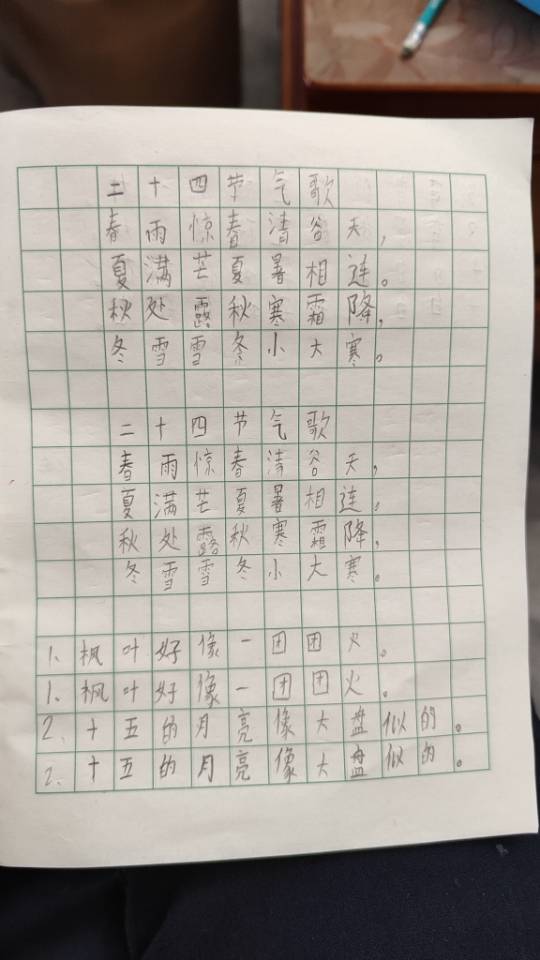 二十四节气歌
春雨惊春清谷天,
夏满芒夏暑相连。
秋处露秋寒霜降,
冬雪雪冬小大寒。
二十四节气歌
春雨惊春清谷天,
夏满芒夏暑相连,
秋处露秋寒霜降,
冬雪雪冬小大寒。
1、枫叶好像一团团火。
1、枫叶好像一团团火。
2、十五的月亮像大盘似的。
2、十五的月亮像大盘似的。